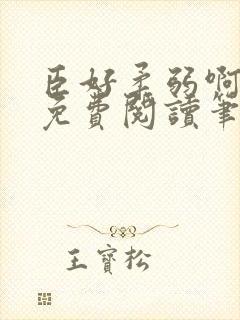 臣好柔弱啊
免費閱讀筆
王寶松